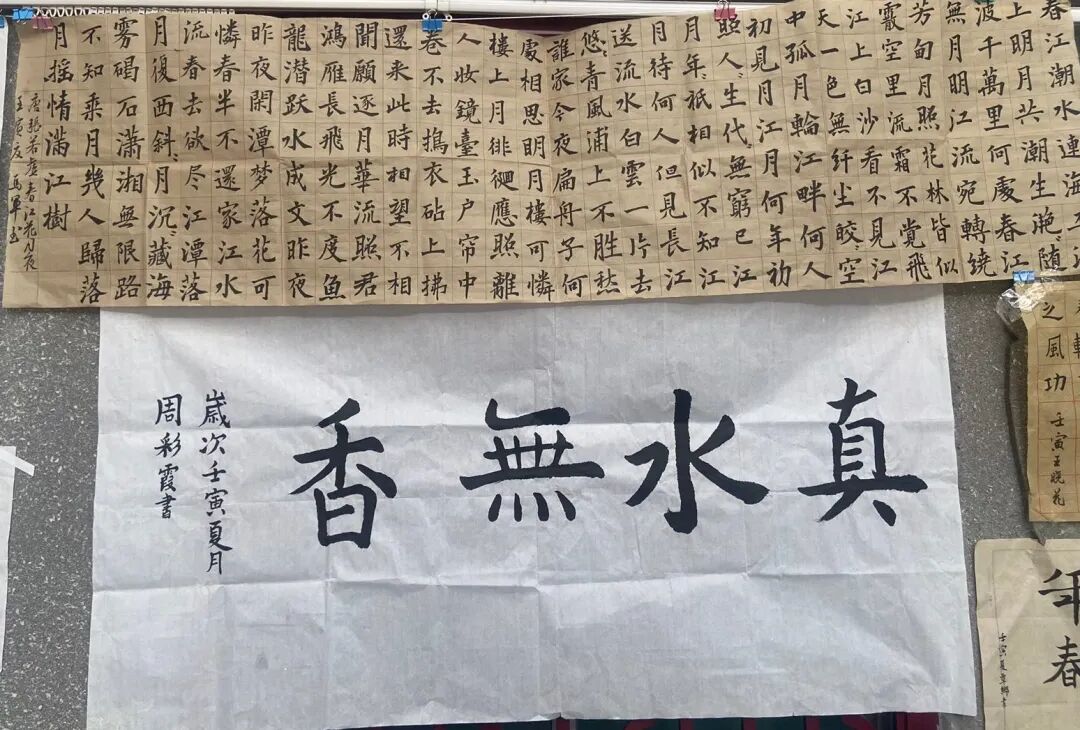 春江潮水連海平
上明月共潮生灩〻随
波千萬里何處春江
無月明江流宛轉繞
芳甸月照花林皆似
霰空里流霜不觉飛
江上白沙看不見江
天一色無纤尘皎〻空
中孤月輪江畔何人
初見月江月何年初
照人〻生代〻無窮已江
月年〻祇相似不知江
月待何人但見長江
送流水白雲一片去
悠〻青風浦上不勝愁
誰家今夜扁舟子何
處相思明月樓可憐
樓上月徘徊應照離
人妆鏡臺玉户帘中
卷不去搗衣砧上拂
還来此時相望不相
聞願逐月華流照君
鴻雁長飛光不度魚
龍潜跃水成文昨夜
昨夜閑潭梦落花可
憐春半不還家江水
流春去欲尽江潭落
月復西斜〻月沉〻藏海
雾碣石潇湘無限路
不知乘月幾人歸落
月摇情满江樹
唐張若虚春江花月夜
壬寅夏馬軍书
真水無香
歲次壬寅夏月
周彩霞書
之風功
壬寅王晓花
年春
壬寅夏